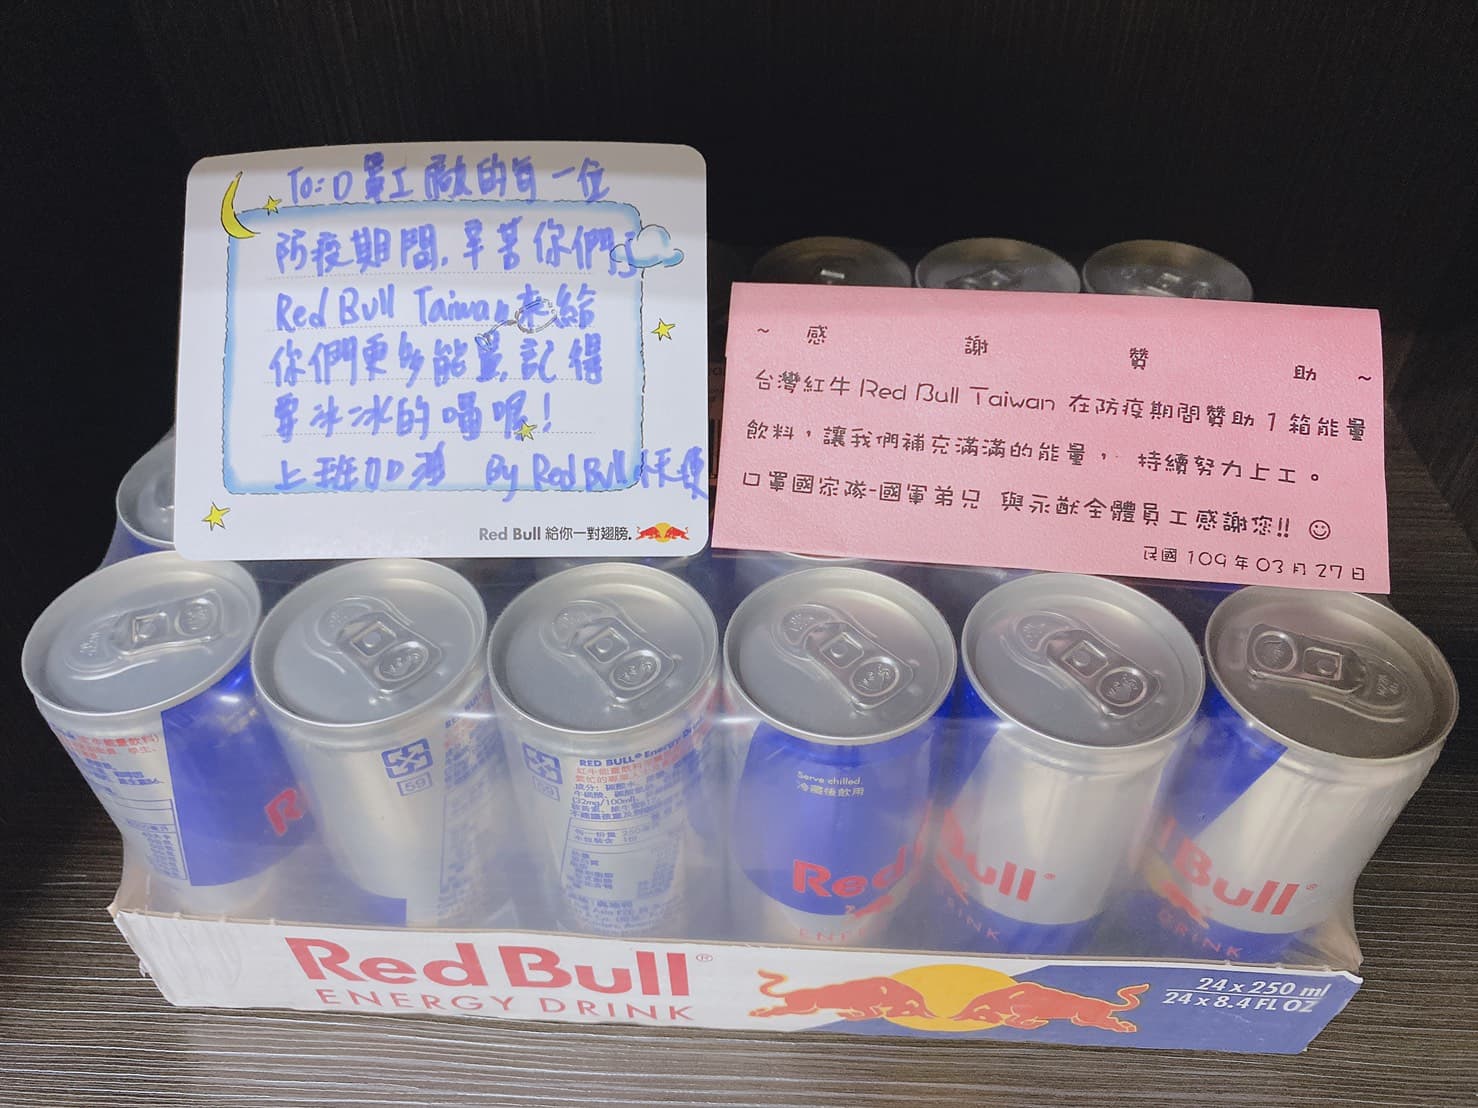 To:口罩工廠的每一位
防疫期間,辛苦你們了
Red Bull Taiwan來給
你們更多能量,記得
要冰冰的喝喔!
上班加油 By Red Bull
Red Bull 給你一對翅膀.
~ 感 謝 贊 助 ~
台灣紅牛 Red Bull Taiwan 在防疫期間贊助 1 箱能量
飲料,讓我們補充滿滿的能量, 持續努力上工。
口罩國家隊-國軍弟兄 與永猷全體員工感謝您!! ☺
民國 109 年 03 月 27 日
59
59
RED BULL® Energy
紅牛能量飲料
(32mg/100ml)
Serve chilled
冷藏後飲用
Red
Red
Bull®
Bull®
DRINK
Red Bull®
ENERGY DRINK
24 x 250 ml
24 x 8.4 FL OZ